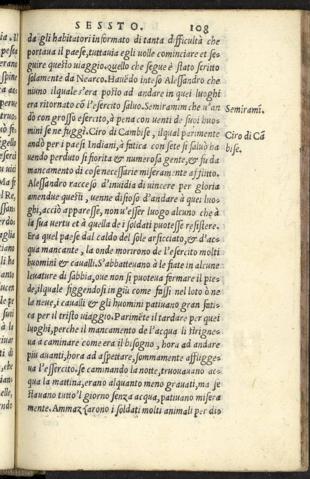 SESSTO. 108
da gli habitatori informato di tanta difficultà che
portaua il paese, tuttauia egli uolle cominciare et se-
guire questo uiaggio. quello che segue è stato scritto
solamente da Nearco. Hauẽdo inteso Alessandro che
niuno il quale s'era posto ad andare in quei luoghi
era ritornato cõ l'esercito saluo. Semiramim che n'an
dò con grosso esercito, à pena con uenti de suoi huo-
mini se ne fuggì. Ciro di Cambise, il qual parimente
andò per i paesi Indiani, à fatica con sete si saluò ha
uendo perduto sì fiorita & numerosa gente, & fu da
mancamento di cose necessarie miseramente afflitto.
Alessandro racceso d'inuidia di uincere per gloria
amendue questi, uenne disioso d'andare à quei luo-
ghi, acciò apparesse, non u'esser luogo alcuno che à
la sua uertu et à quella de i soldati potesse resistere.
Era quel paese dal caldo del sole arsicciato, & d'ac-
qua mancante, la onde morirono de l'esercito molti
huomini & caualli. S'abbatteuano à le fiate in alcune
leuature di sabbia, oue non si poteua fermare il pie-
de, il quale figgendosi in giù come fassi nel loto ò ne
la neue, i caualli & gli huomini patiuano gran fati-
ca per il tristo uiaggio. Parimẽte il tardare per quei
luoghi, perche il mancamento de l'acqua li strigne-
ua à caminare come era il bisogno, hora ad andare
piu auanti, hora ad aspettare, sommamente affligge-
ua l'essercito. se caminando la notte, truouauano ac-
qua la mattina, erano alquanto meno grauati, ma se
stauano tutto'l giorno senza acqua, patiuano misera
mente. Ammazzarono i soldati molti animali per dis
Semirami.
Ciro di Cã
bise.